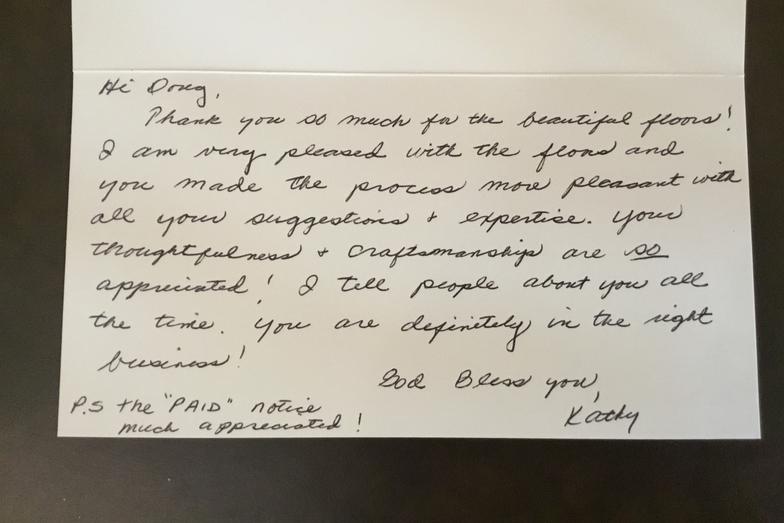 Hi Doug,
Thank you so much for the beautiful floors!
I am very pleased with the floors and
you made the process more pleasant with
all your suggestions + expertise. Your
thoughtfulness + craftsmanship are so
appreciated! I tell people about you all
the time. You are definitely in the right
business!
God Bless you,
Kathy
P.S the "PAID" notice
much appreciated!